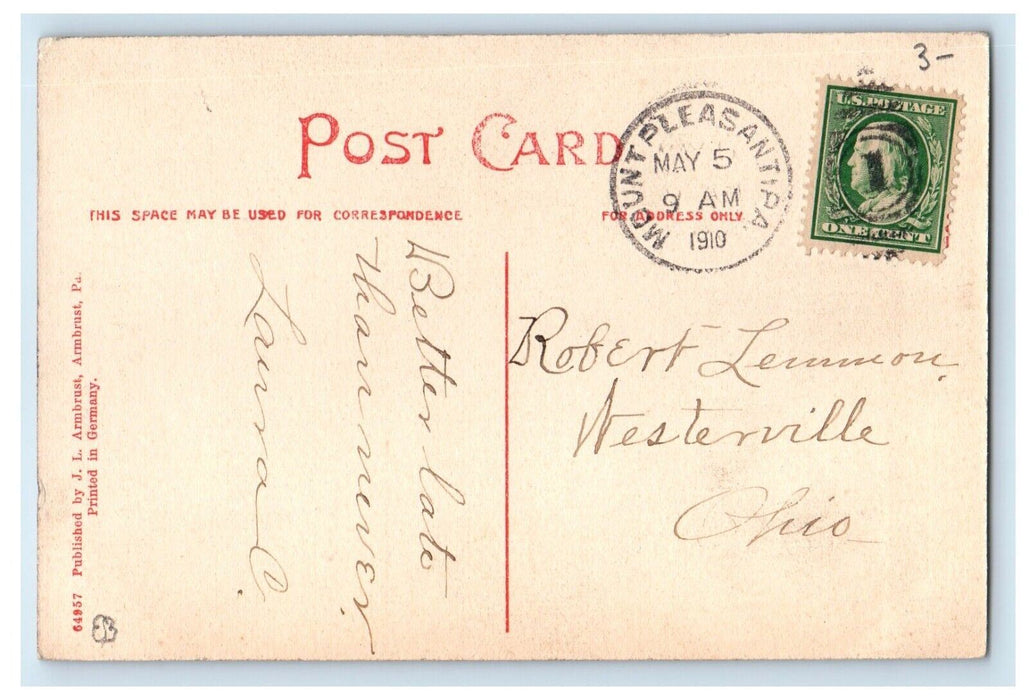 3-
POST CARD
THIS SPACE MAY BE USED FOR CORRESPONDENCE
FOR ADDRESS ONLY
MOUNT PLEASANT, PA.
MAY 5
9 AM
1910
U.S. POSTAGE
1
ONE CENT
Better late
than never.
Laura C.
Robert Lemmon.
Westerville
Ohio
64957 Published by J. L. Armbrust, Armbrust, Pa.
Printed in Germany.